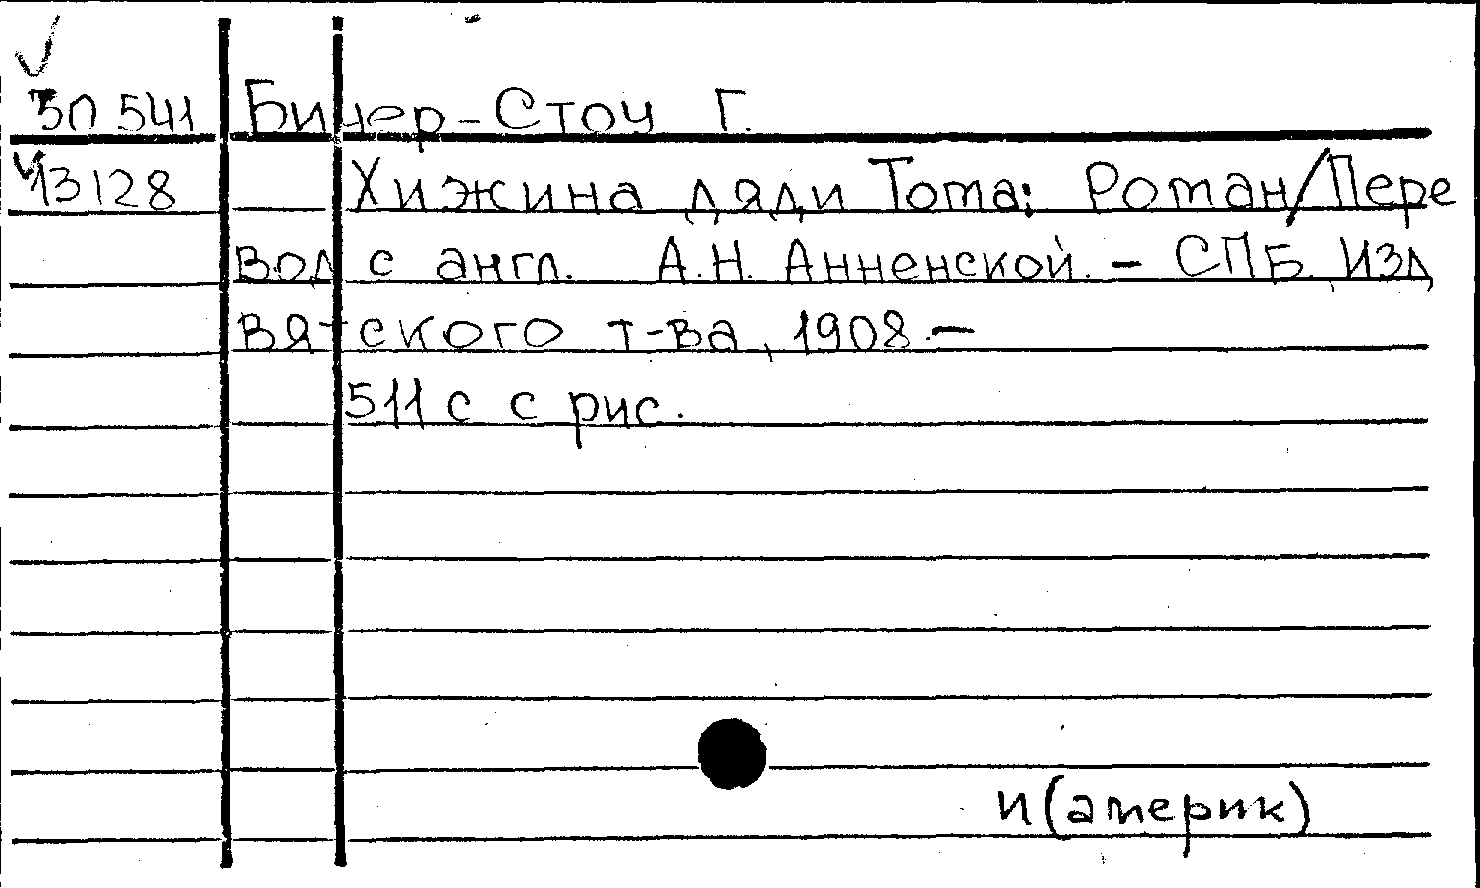 30 541 Бичер-Стоу Г.
13128 Хижина дяди Тома: Роман/Пере
вод с англ. А.Н. Анненской. - СПБ. Изд
Вятского т-ва, 1908.-
511 с с рис.
и(америк)